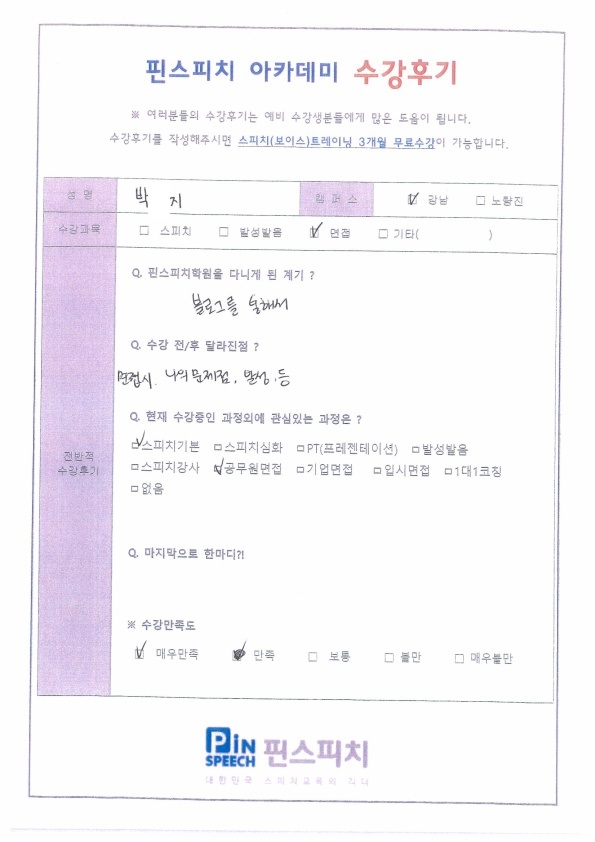 핀스피치 아카데미 수강후기
※ 여러분들의 수강후기는 예비 수강생분들에게 많은 도움이 됩니다.
수강후기를 작성해주시면 스피치(보이스)트레이닝 3개월 무료수강이 가능합니다.
성 명 박 지 캠 퍼 스 ☑ 강남 □ 노량진
수강과목 □ 스피치 □ 발성발음 ☑ 면접 □ 기타( )
Q. 핀스피치학원을 다니게 된 계기 ?
블로그를 통해서
Q. 수강 전/후 달라진점 ?
면접시. 나의 문제점, 발성, 등
Q. 현재 수강중인 과정외에 관심있는 과정은 ?
전반적
수강후기
☑스피치기본 □스피치심화 □PT(프레젠테이션) □발성발음
□스피치강사 ☑공무원면접 □기업면접 □입시면접 □1대1코칭
□없음
Q. 마지막으로 한마디?!
※ 수강만족도
☑ 매우만족 ■ 만족 □ 보통 □ 불만 □ 매우불만
PiN SPEECH 핀스피치
대한민국 스피치교육의 리더